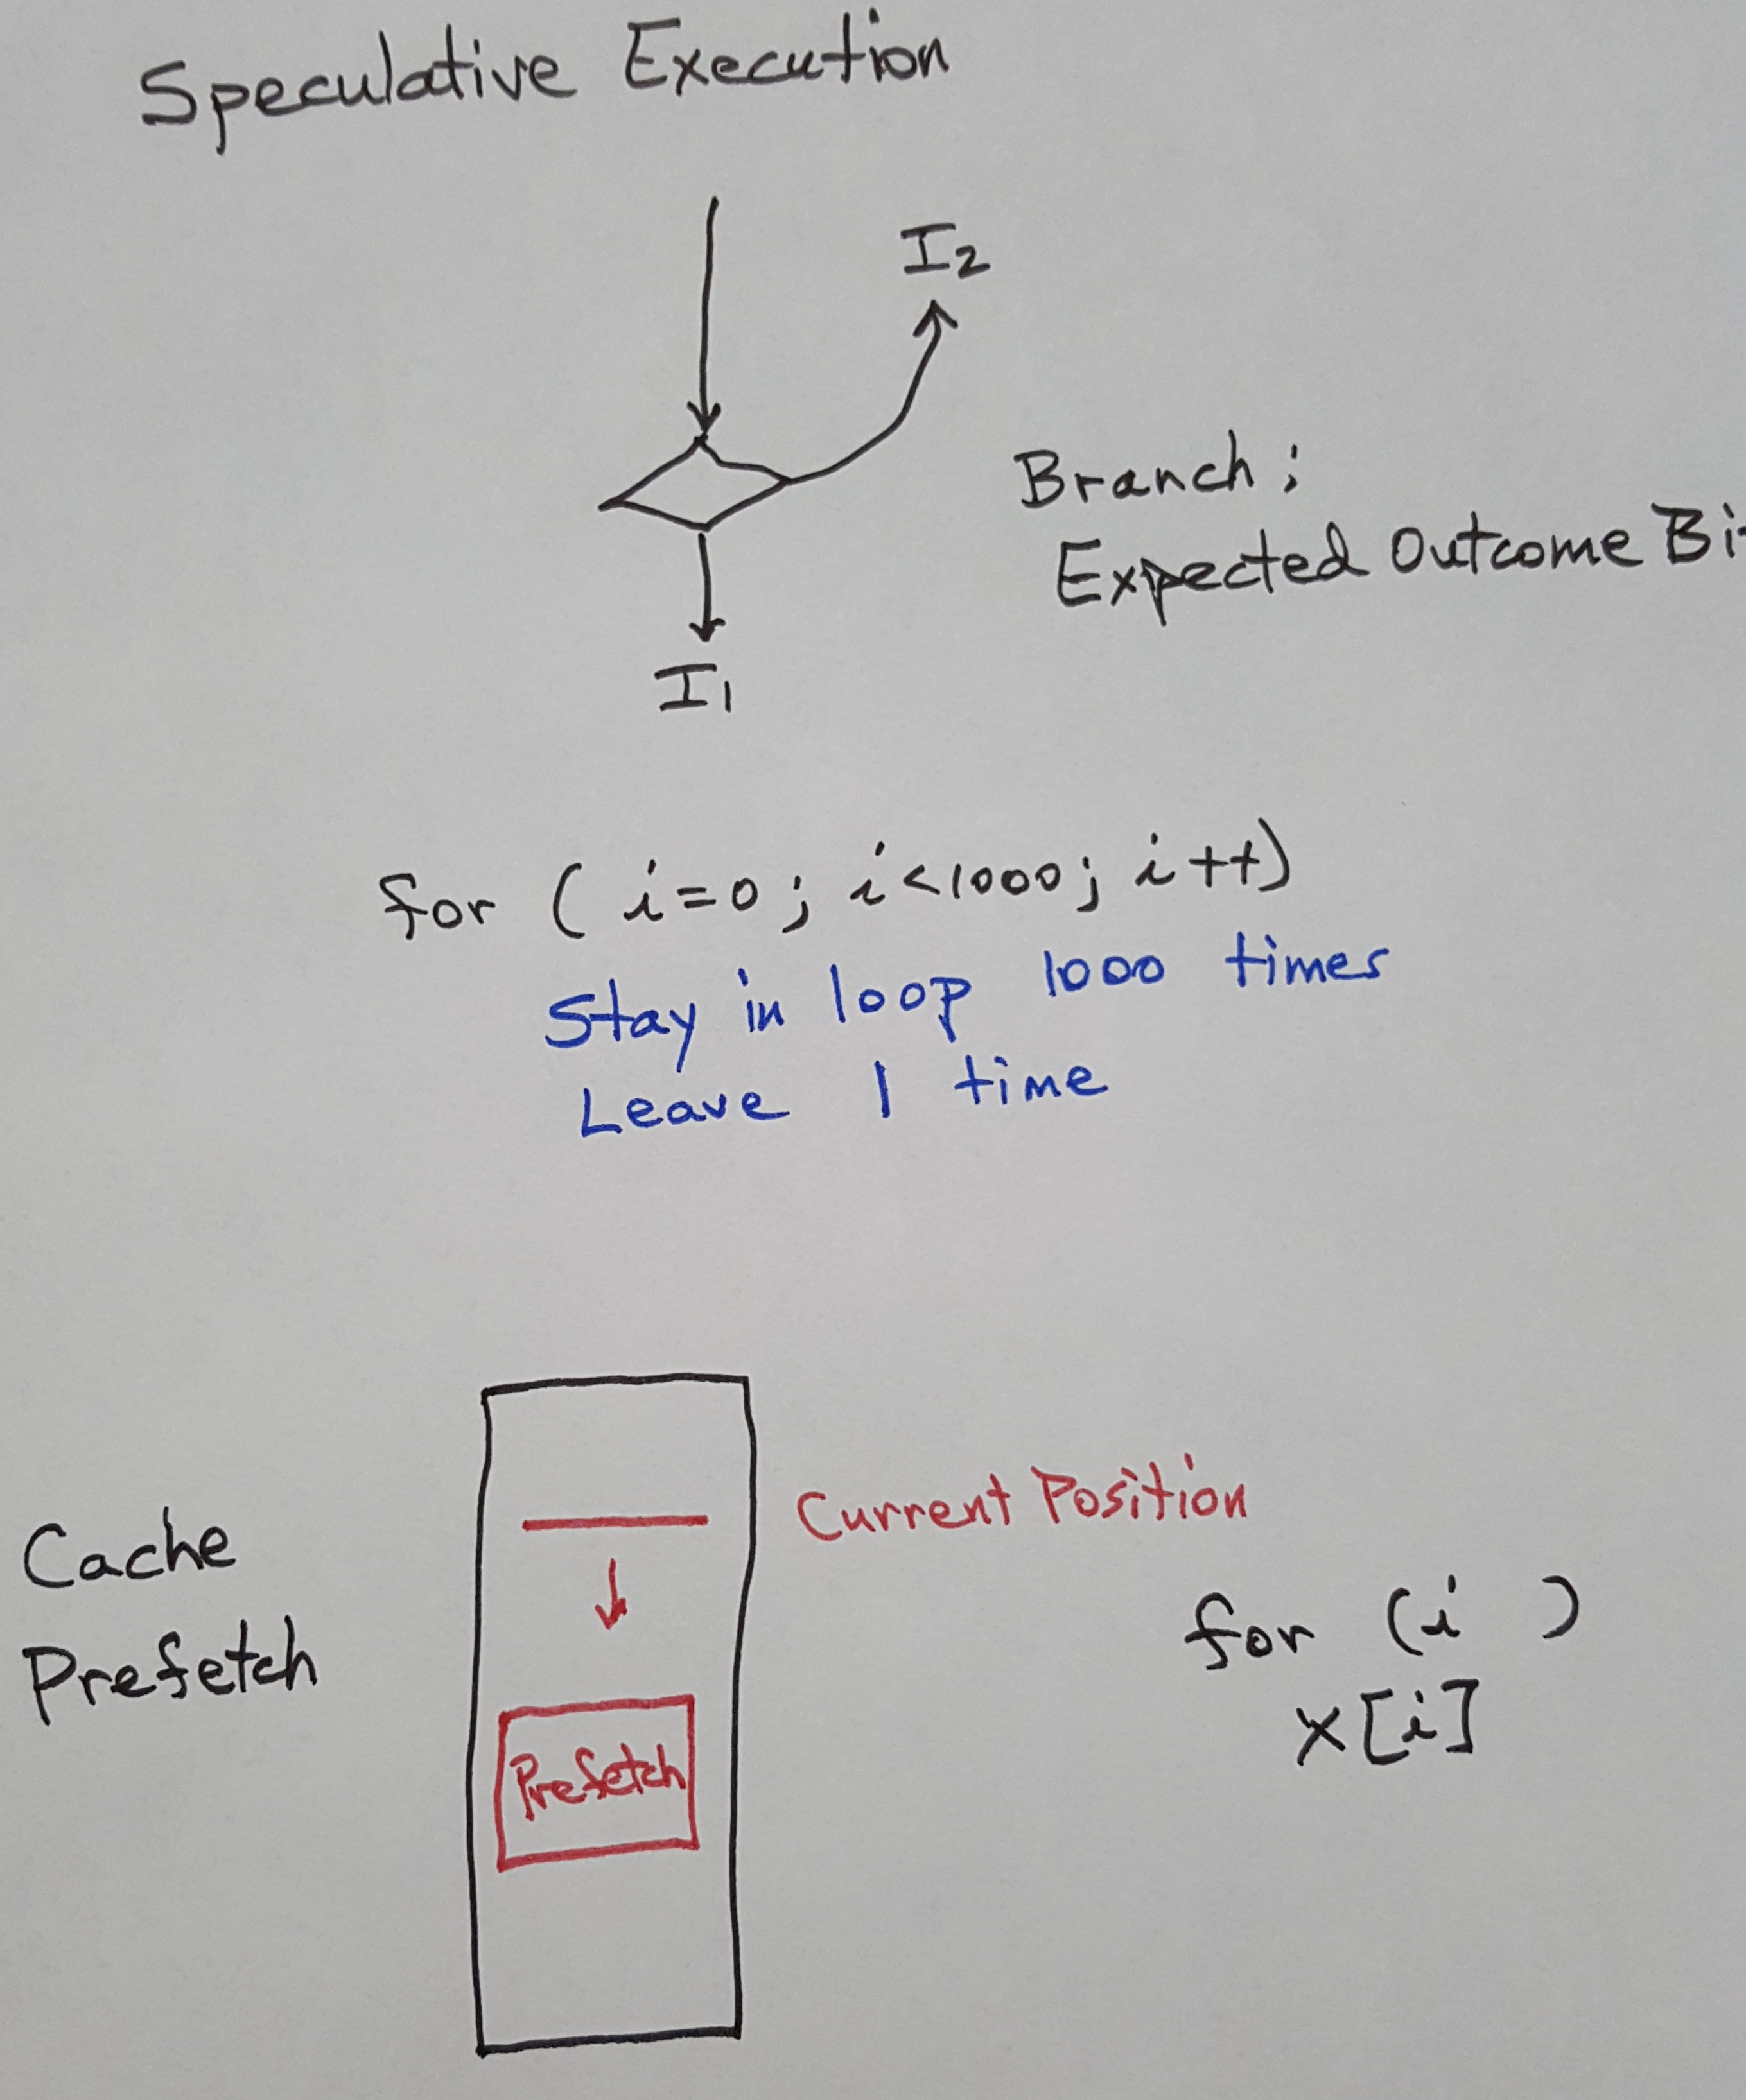 Speculative Execution
I2
Branch;
Expected Outcome
I1
for ( i=0; i<1000; i++)
Stay in loop 1000 times
Leave 1 time
Current Position
Cache
Prefetch
for (i )
x[i]
Prefetch